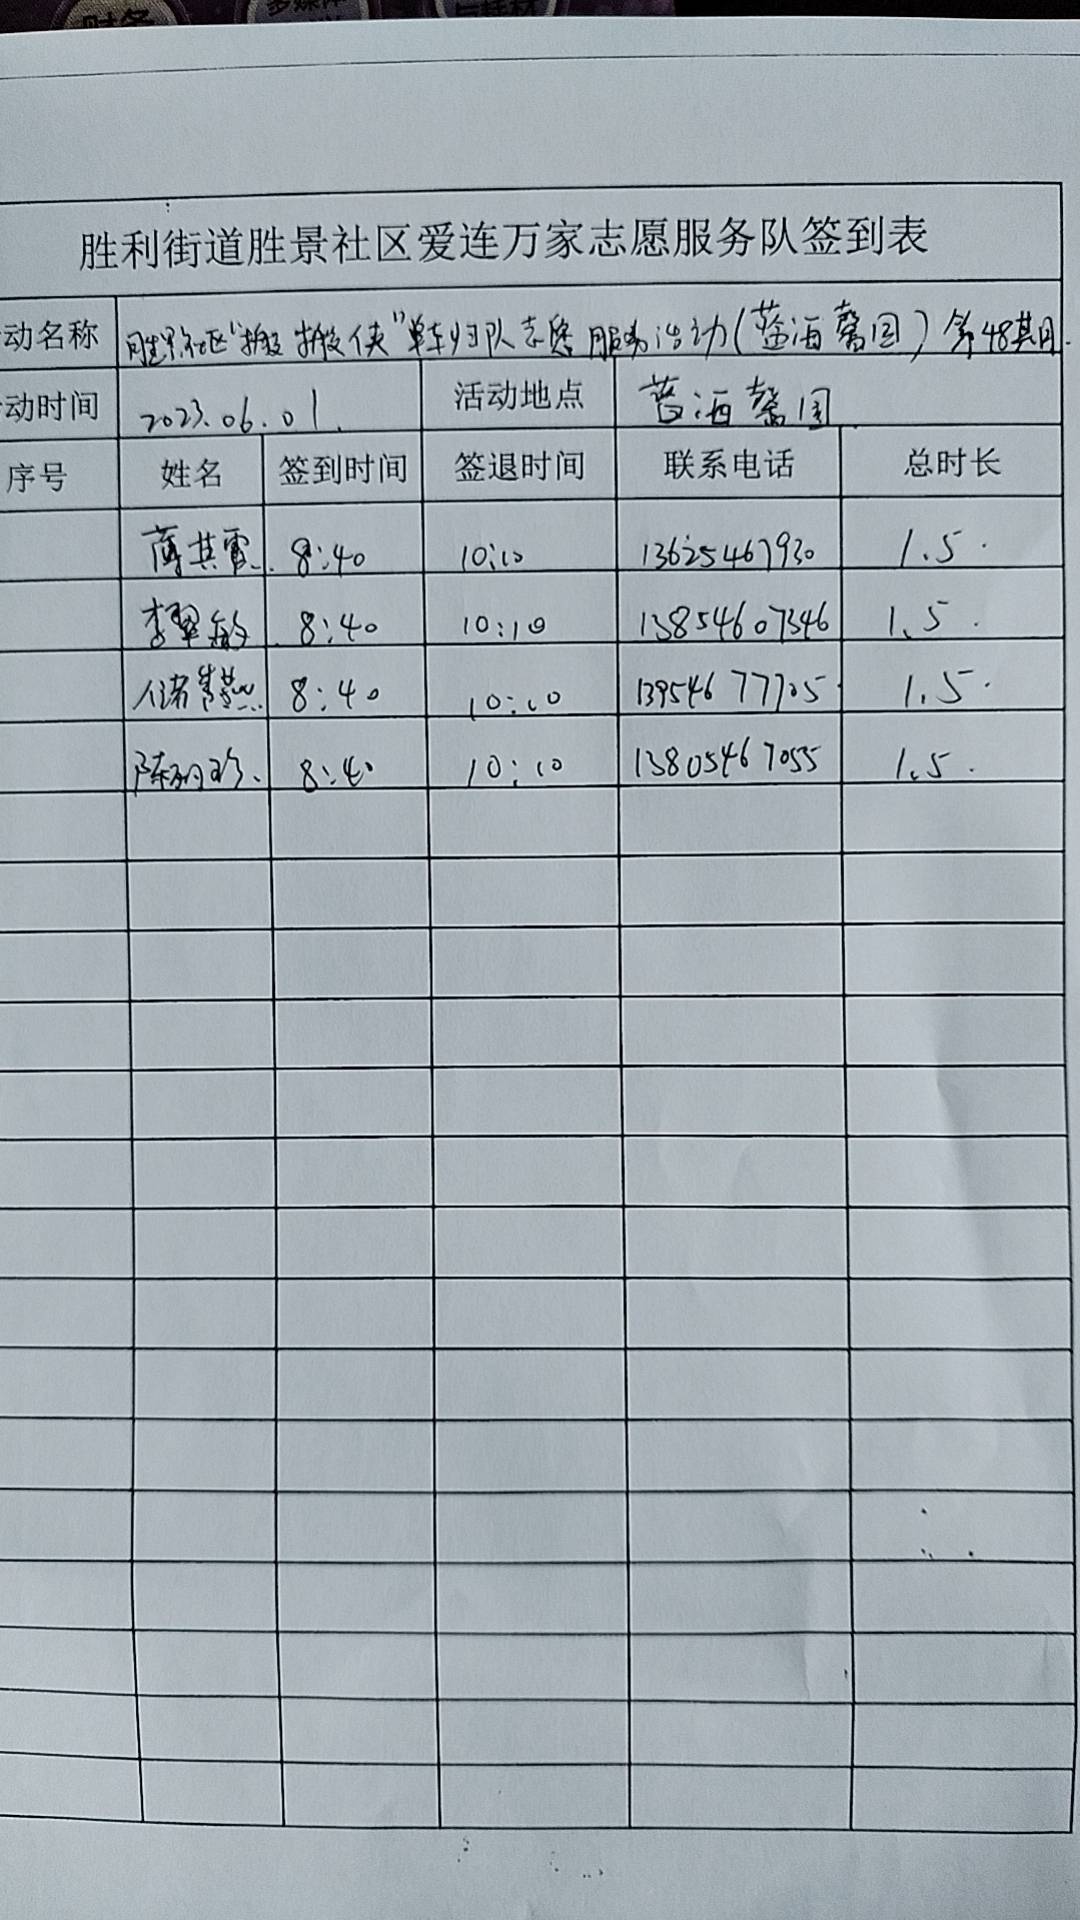 财务
多媒体
与耗材
胜利街道胜景社区爱连万家志愿服务队签到表
动名称 胜景社区"搬搬侠"单车归队志愿服务活动(蓝海馨园)第48期.
动时间 2023.06.01. 活动地点 蓝海馨园
序号 姓名 签到时间 签退时间 联系电话 总时长
薄其雷 8:40 10:10 13625467930 1.5.
李翠敏 8:40 10:10 13854607346 1.5.
储慧燕 8:40 10:10 13954677705 1.5.
陈丽珍 8:40 10:10 13805467055 1.5.